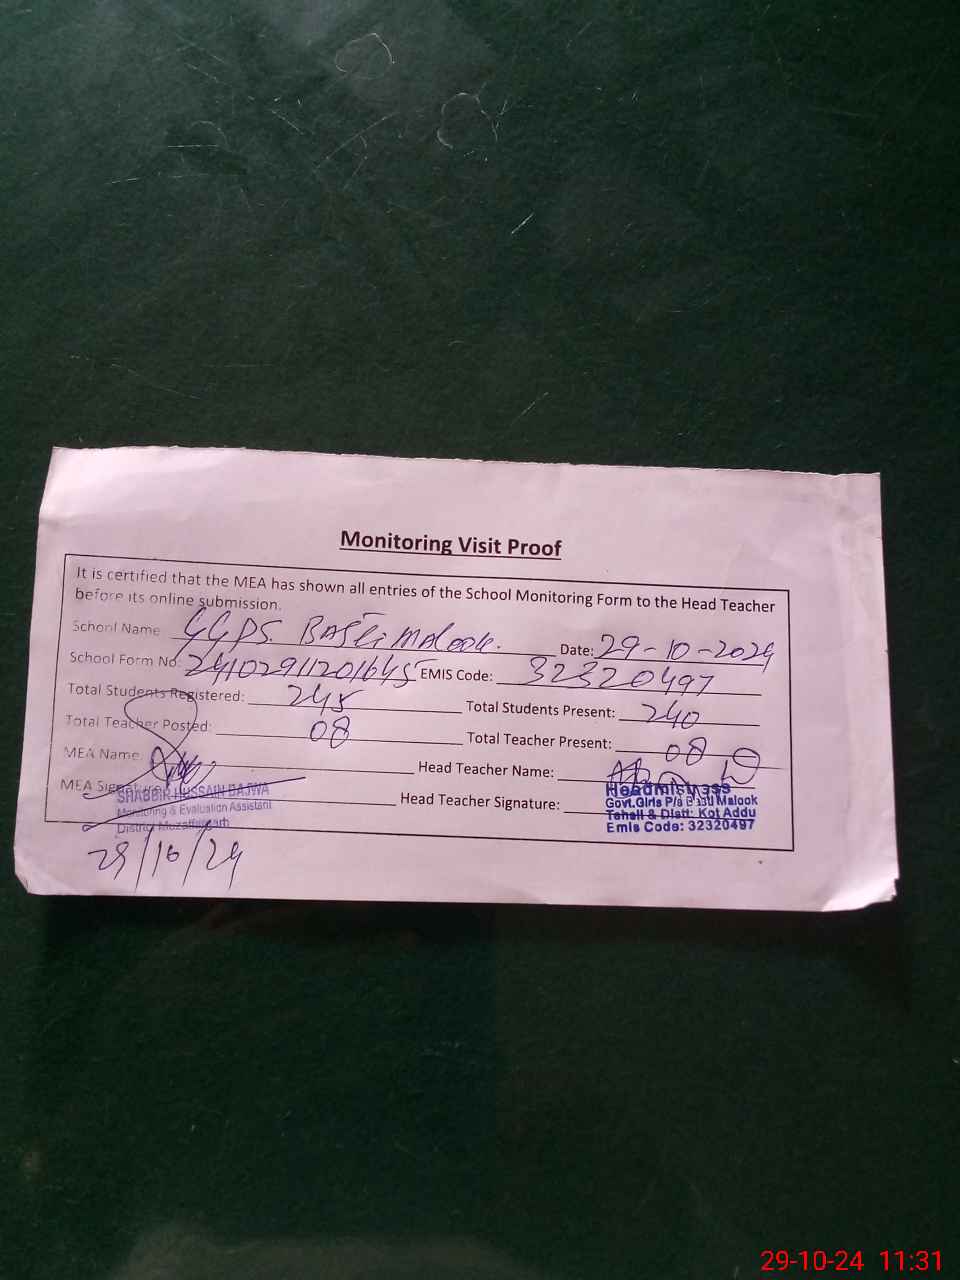 Monitoring Visit Proof
It is certified that the MEA has shown all entries of the School Monitoring Form to the Head Teacher
before its online submission.
School Name GGPS. BASTi MALOOK. Date: 29-10-2024
School Form No: 24102911201645 EMIS Code: 32320497
Total Students Registered: 245 Total Students Present: 240
Total Teacher Posted: 08 Total Teacher Present: 08
MEA Name Head Teacher Name:
MEA Signature Head Teacher Signature:
SHABBIR HUSSAIN BAJWA
Monitoring & Evaluation Assistant
District Muzaffargarh
29/10/24
Headmistress
Govt.Girls P/s Basti Malook
Tehsil & Distt: Kot Addu
Emis Code: 32320497
29-10-24 11:31